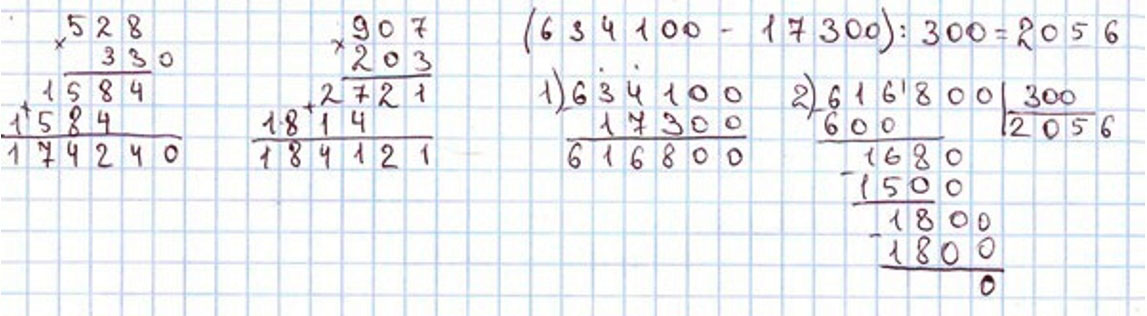 528
× 330
1584
+ 1584
174240
907
× 203
2721
+ 1814
184121
(634100 - 17300) : 300 = 2056
1) 634100
17300
616800
2) 616'800 | 300
600 | 2056
1680
- 1500
1800
- 1800
0